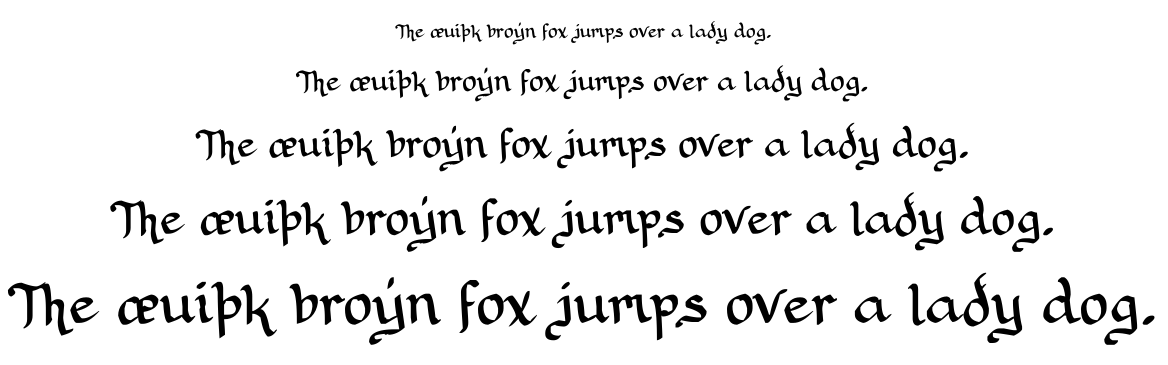 The æuiþk broýn fox jumps over a laðy dog.
The æuiþk broýn fox jumps over a laðy dog.
The æuiþk broýn fox jumps over a laðy dog.
The æuiþk broýn fox jumps over a laðy dog.
The æuiþk broýn fox jumps over a laðy dog.